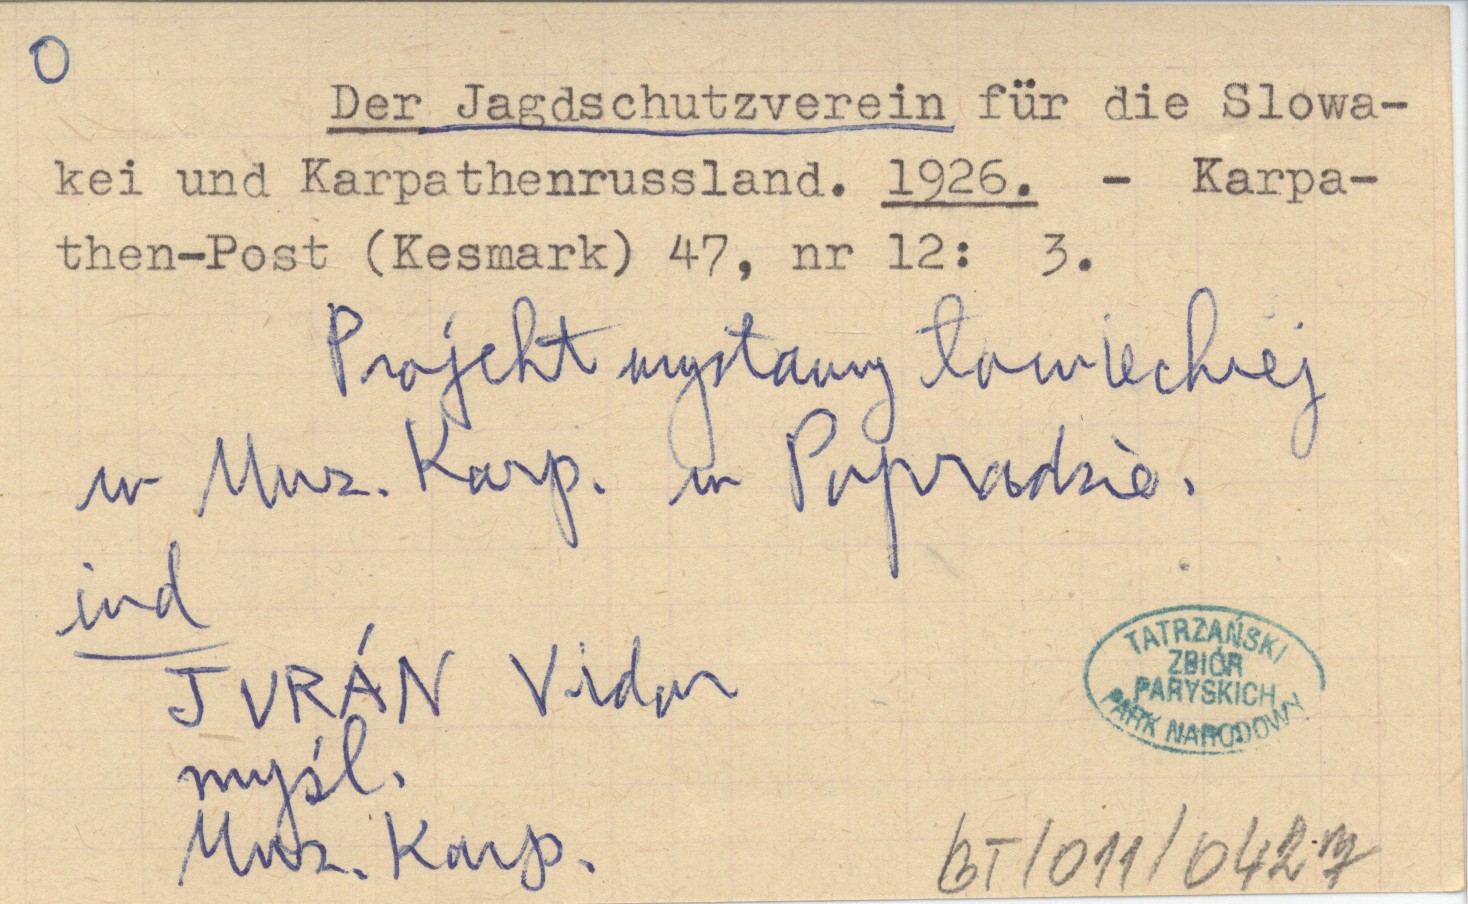 O
Der Jagdschutzverein für die Slowa-
kei und Karpathenrussland. 1926. - Karpa-
then-Post (Kesmark) 47, nr 12: 3.
Projekt wystawy łowieckiej
w Muz. Karp. w Popradzie.
ind
JURÁN Vidor
myśl.
Muz. Karp.
TATRZAŃSKI
ZBIÓR
PARYSKICH
PARK NARODOWY
BT/011/0427